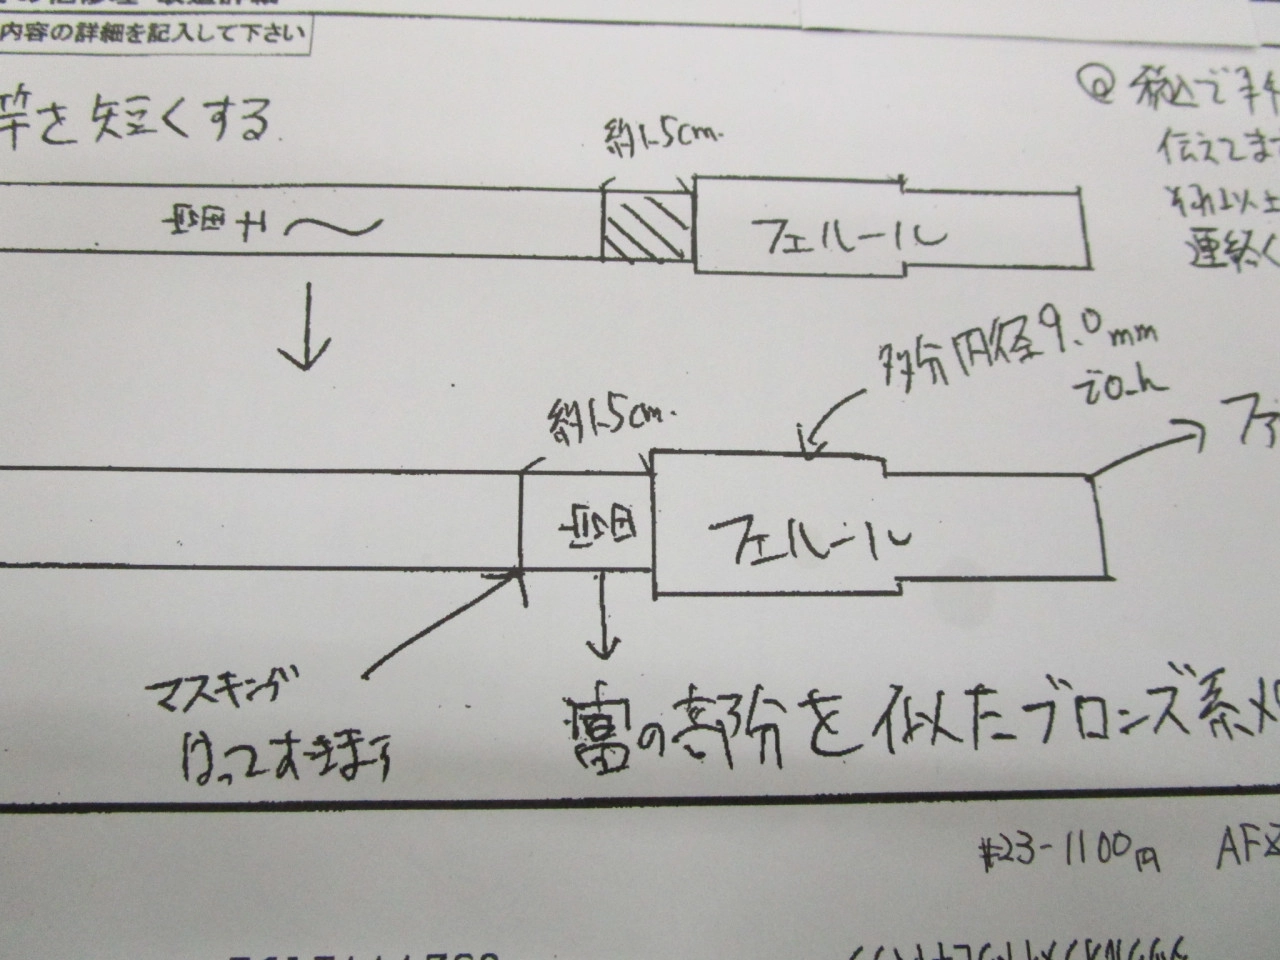 内容の詳細を記入して下さい
竿を短くする
税込で
伝えてま
それ以上
連絡く
約1.5cm.
富士
フェルール
多分内径9.0mm
約1.5cm.
富
フェルール
マスキング
はってすきます
富の部分を似たブロンズ系メ
#23-1100円